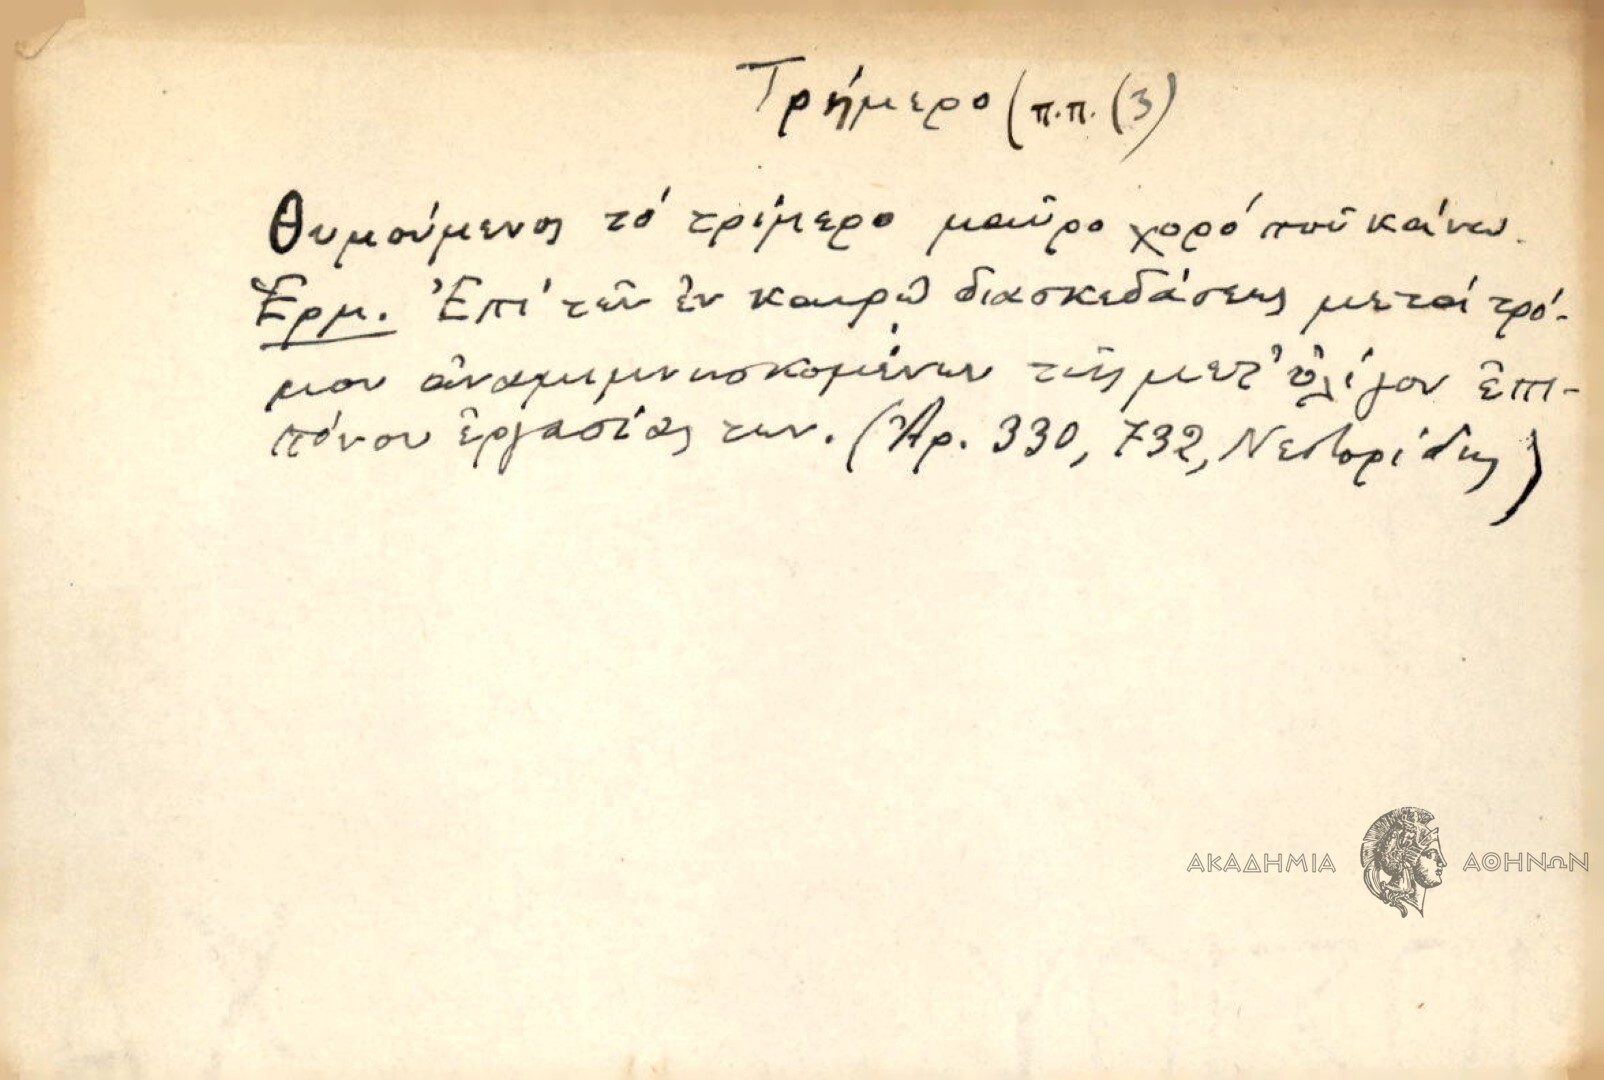 Τρήμερο (π.π. (3)
Θυμούμενος τό τρίμερο μαῦρο χορό ποῦ κάνω.
Ἑρμ. Ἐπί τῶν ἐν καιρῷ διασκεδάσεως μετά τρό-
μου ἀναμιμνησκομένων τῆς μετ' ὀλίγον ἐπι-
πόνου ἐργασίας των. (Ἀρ. 330, 732, Νεστορίδης)
ΑΚΑΔΗΜΙΑ ΑΘΗΝΩΝ